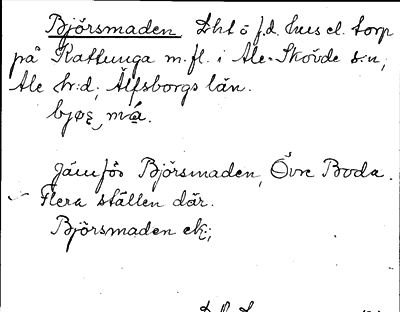 Björsmaden Lht å f.d. hus el. torp
på Kattunga m.fl. i Ale-Skövde s:n,
Ale h:d, Älfsborgs län.
bjøʂ må.
Jämför Björsmaden, Övre Boda.
Flera ställen där.
Björsmaden ek;